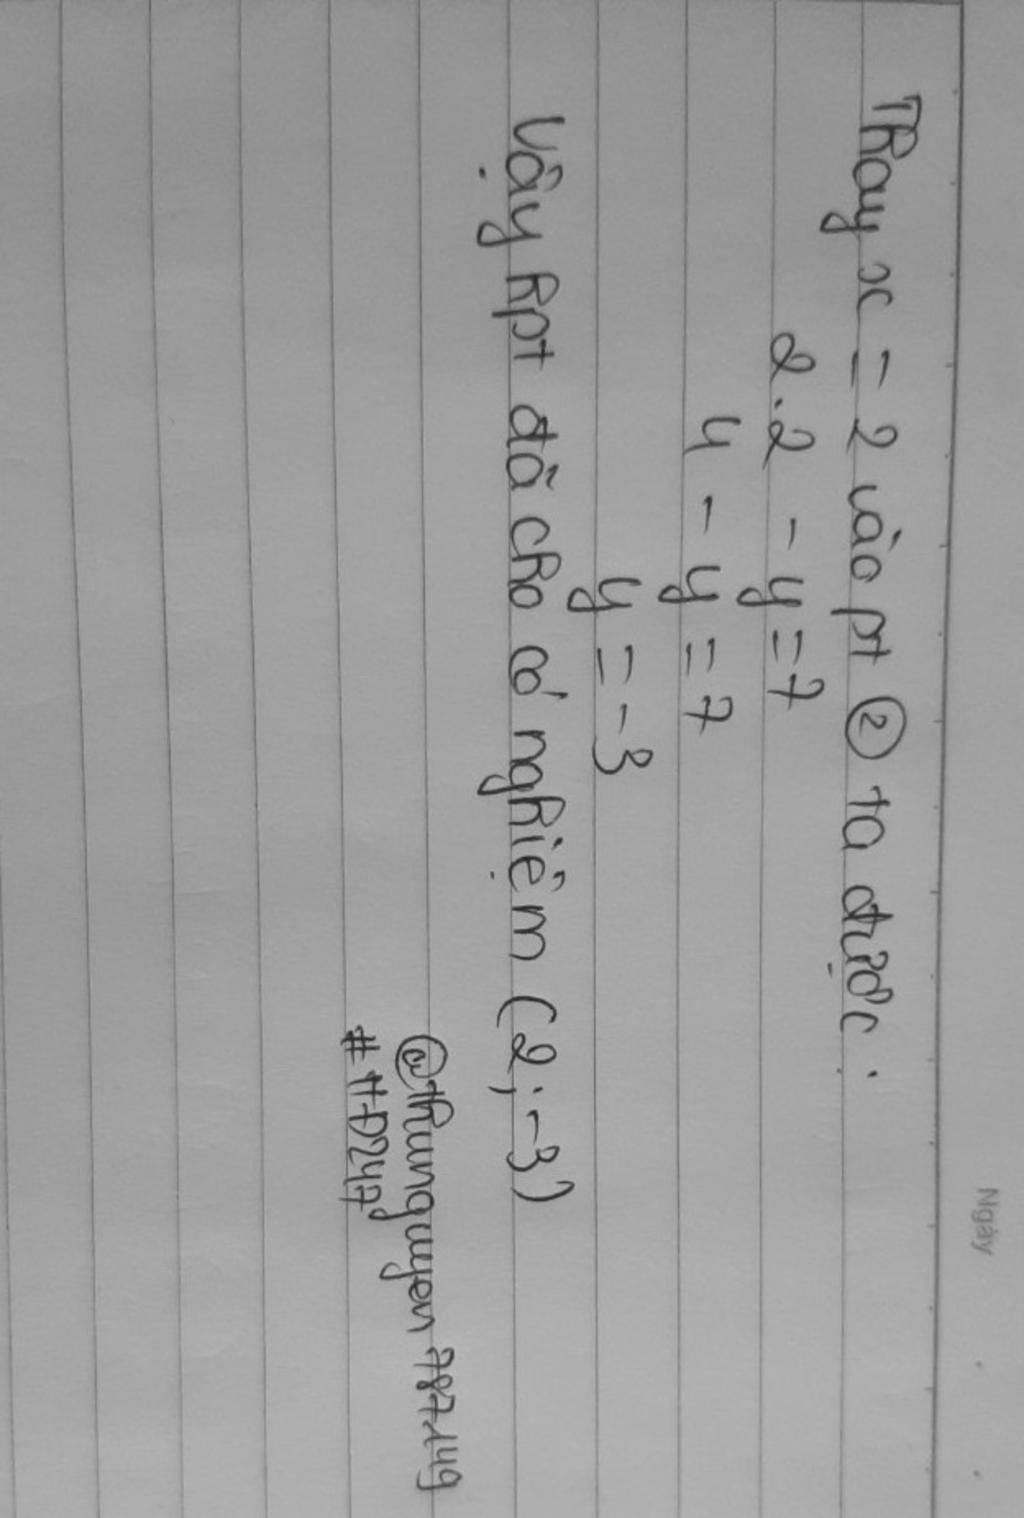 Ngày
Thay x = 2 vào pt ② ta được:
2.2 - y = 7
4 - y = 7
y = -3
Vậy hpt đã cho có nghiệm (2; -3)
@thunguyen787149
#HĐ247